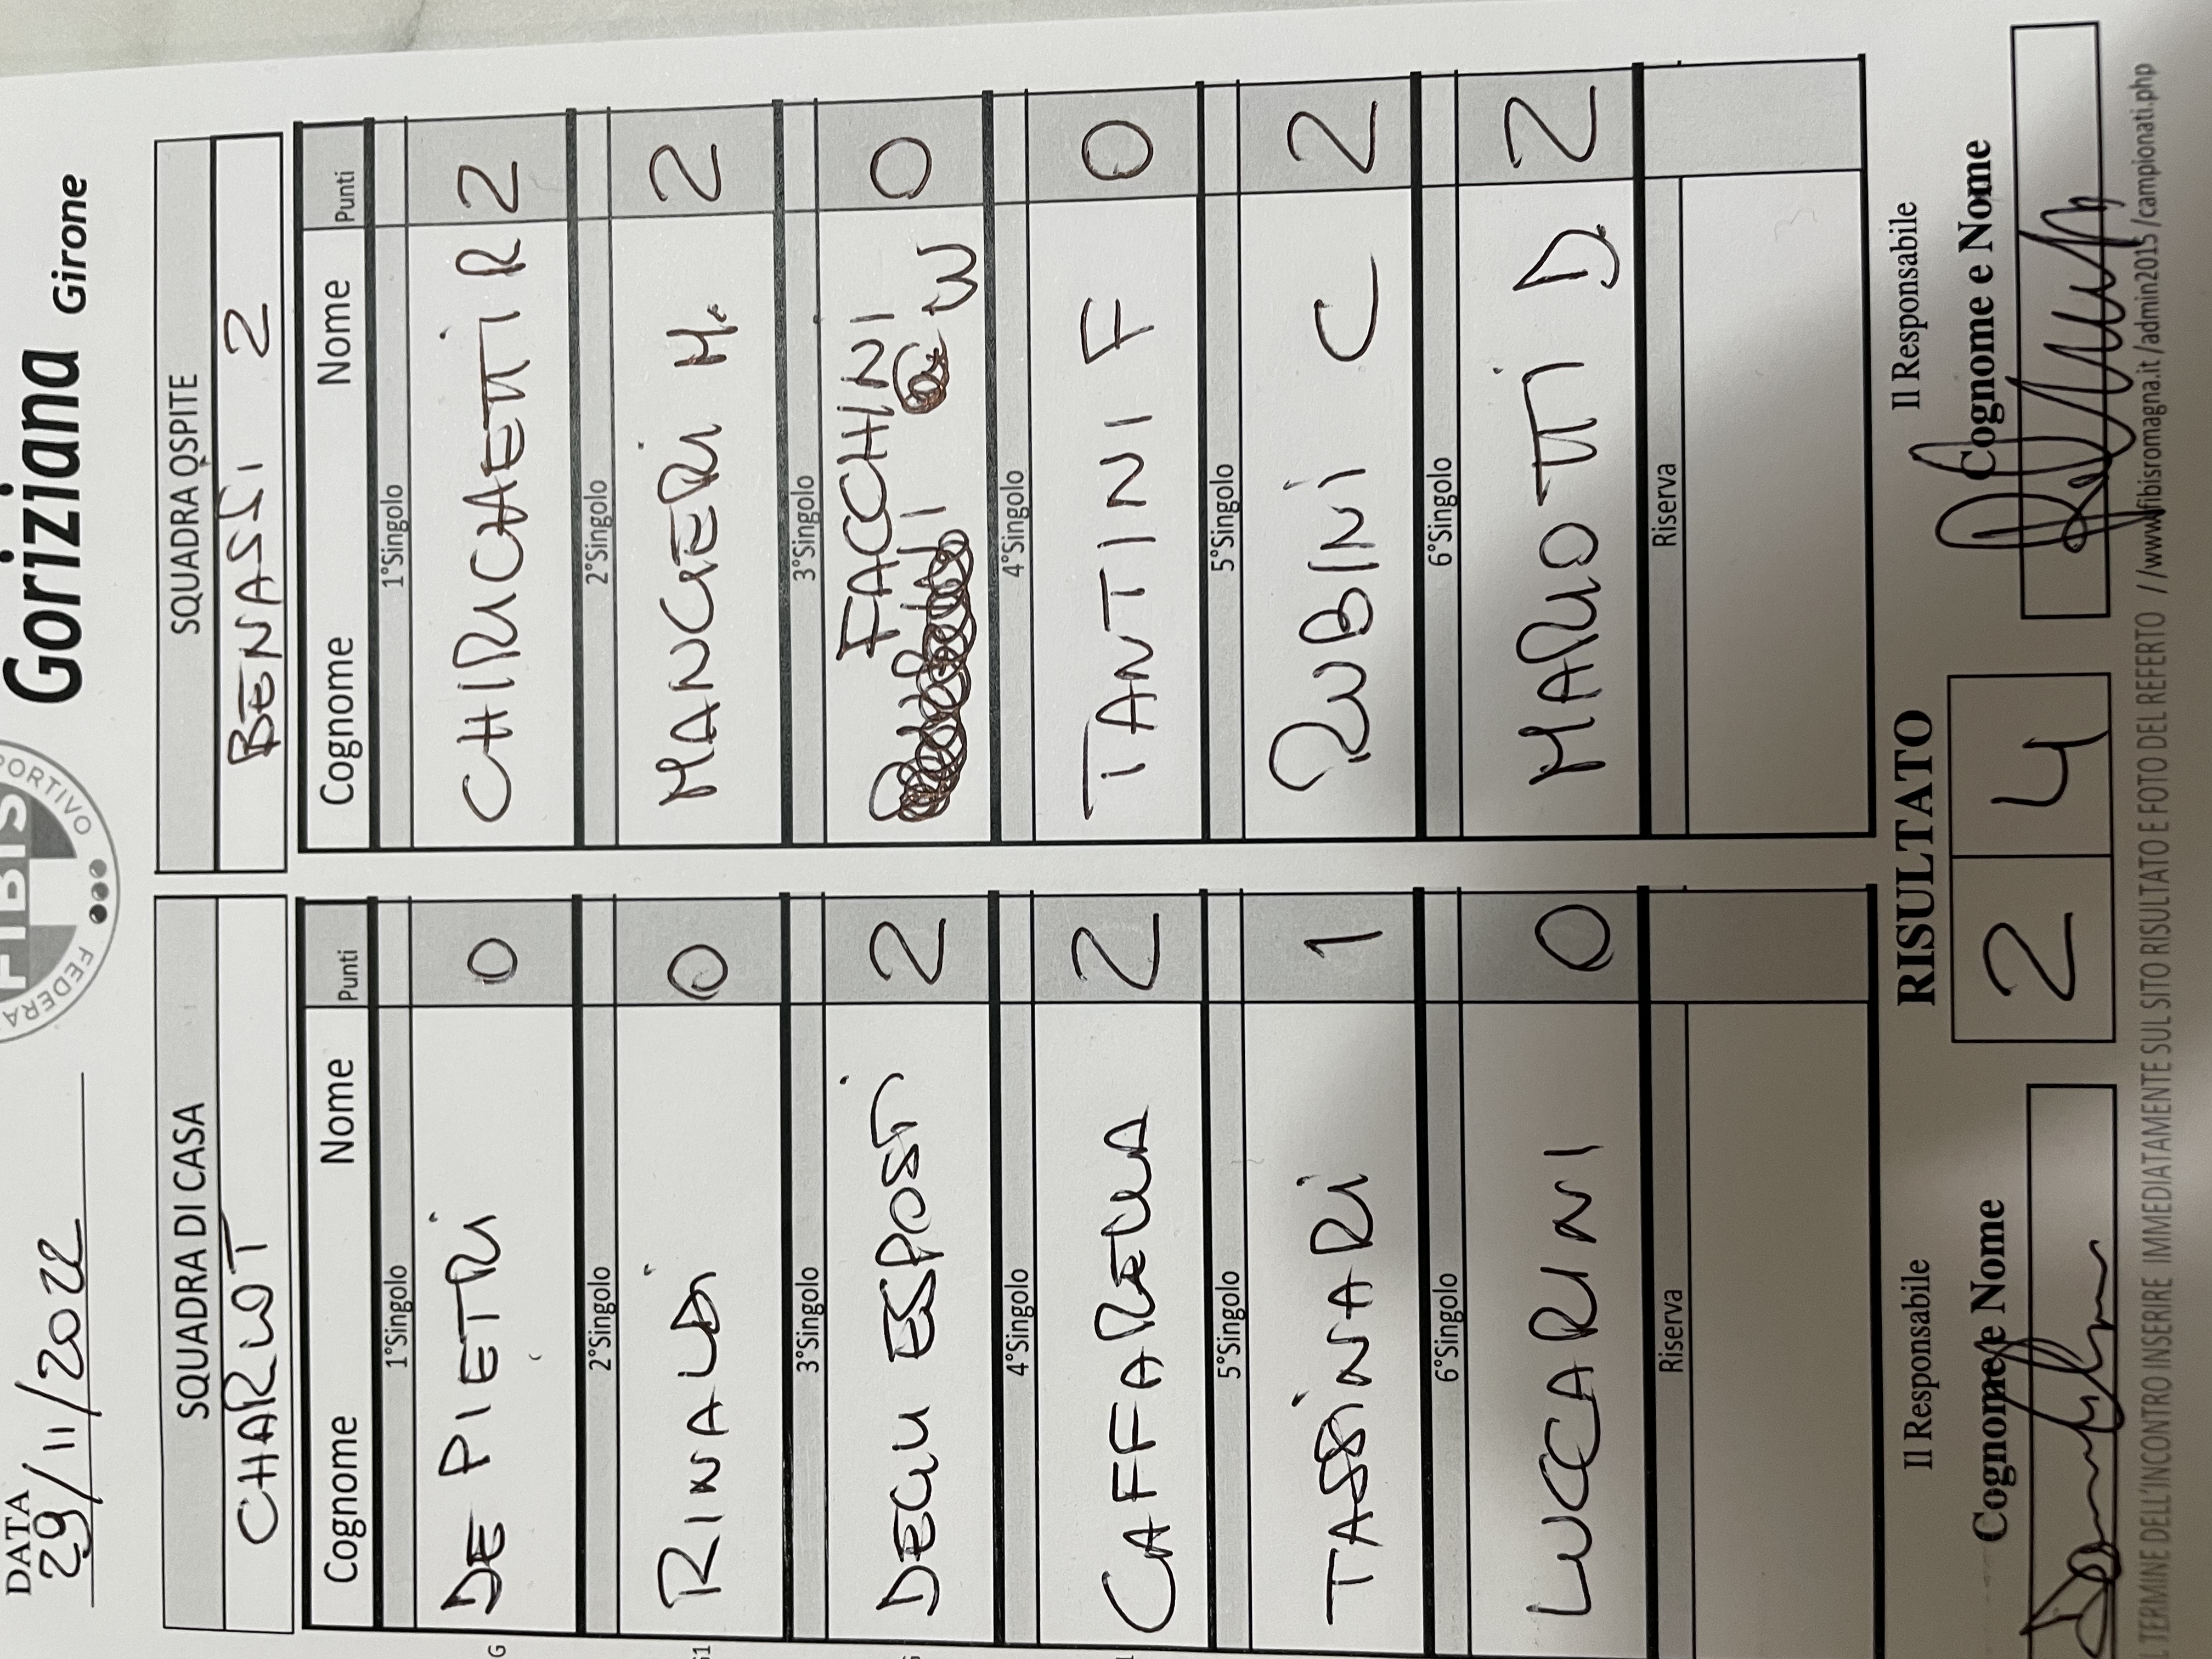 Goriziana Girone
DATA
29/11/2022
FIBIS
FEDERA
PORTIVO
SQUADRA DI CASA
CHARLOT
Cognome Nome Punti
1°Singolo
DE PIETRI 0
2°Singolo
RINALDI 0
3°Singolo
DEGLI ESPOSTI 2
4°Singolo
CAFFARELLA 2
5°Singolo
TASSINARI 1
6°Singolo
LUCCARINI 0
Riserva
SQUADRA OSPITE
BENASSI 2
Cognome Nome Punti
1°Singolo
R 2
2°Singolo
MANGERI M. 2
3°Singolo
FACCHINI
W 0
4°Singolo
TANTINI F 0
5°Singolo
RUBINI C 2
6°Singolo
MARIOTTI D. 2
Riserva
Il Responsabile
Cognome e Nome
RISULTATO
2 4
Il Responsabile
Cognome e Nome
L TERMINE DELL'INCONTRO INSERIRE IMMEDIATAMENTE SUL SITO RISULTATO E FOTO DEL REFERTO //www.fibisromagna.it/admin2015/campionati.php